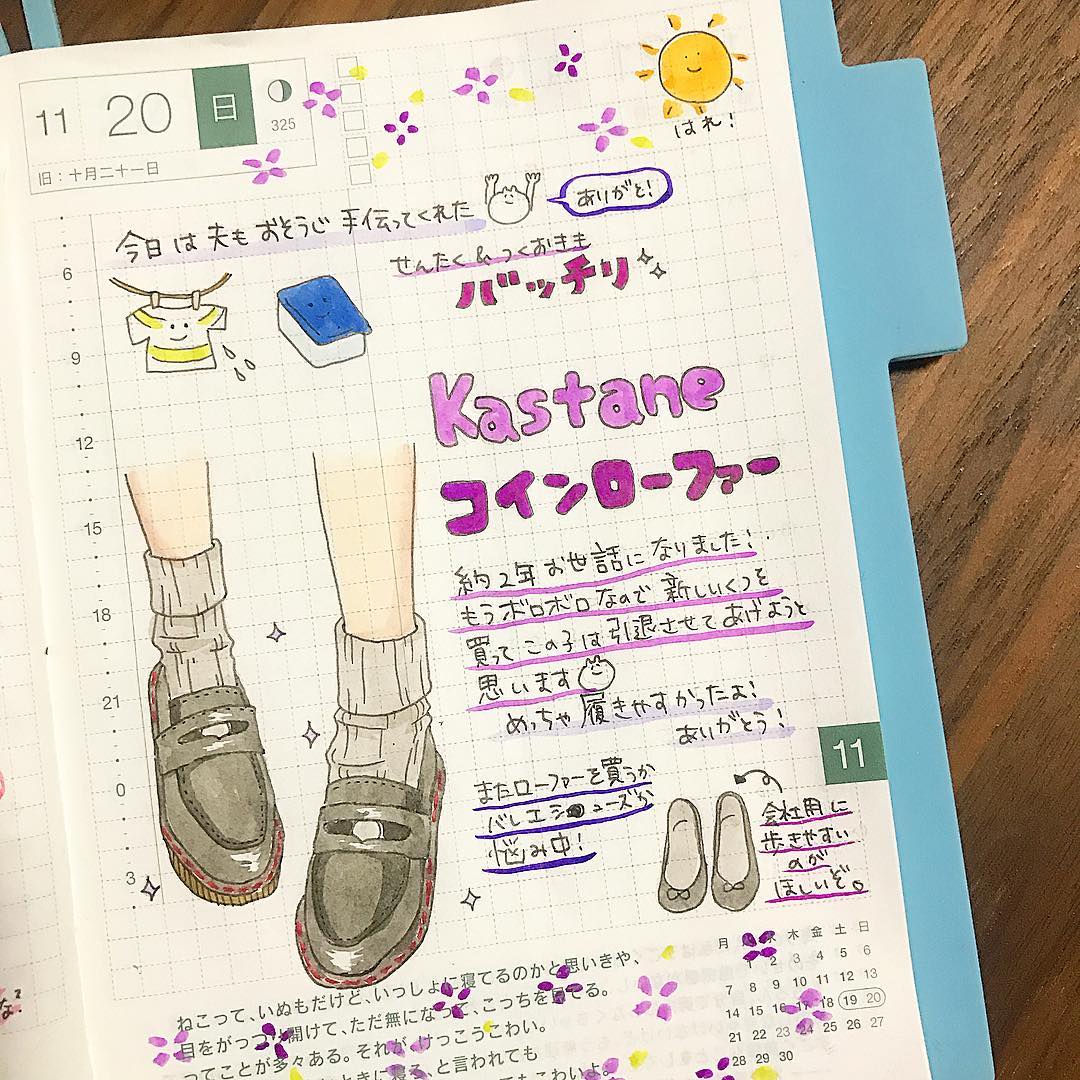 11 20 日
325
旧:十月二十一日
はれ!
今日は夫もおそうじ手伝ってくれた
ありがと!
せんたく&つくおきも
バッチリ
6
9
12
15
18
21
0
3
Kastane
コインローファー
約2年お世話になりました!
もうボロボロなので新しいくつを
買ってこの子は引退させてあげようと
思います
めっちゃ履きやすかったよ!
ありがとう!
11
またローファーを買うか
バレエシューズか
悩み中!
会社用に
歩きやすい
のが
ほしいぞ。
月 水 木 金 土 日
1 2 3 4 5 6
7 8 9 10 11 12 13
14 15 16 17 18 19 20
21 22 23 24 25 26 27
28 29 30
ねこって、いぬもだけど、いっしょに寝てるのかと思いきや、
目をがっつり開けて、ただ無になって、こっちを見てる。
ってことが多々ある。それが、けっこうこわい。
ときに寝る、と言われても
てもこわいよ。